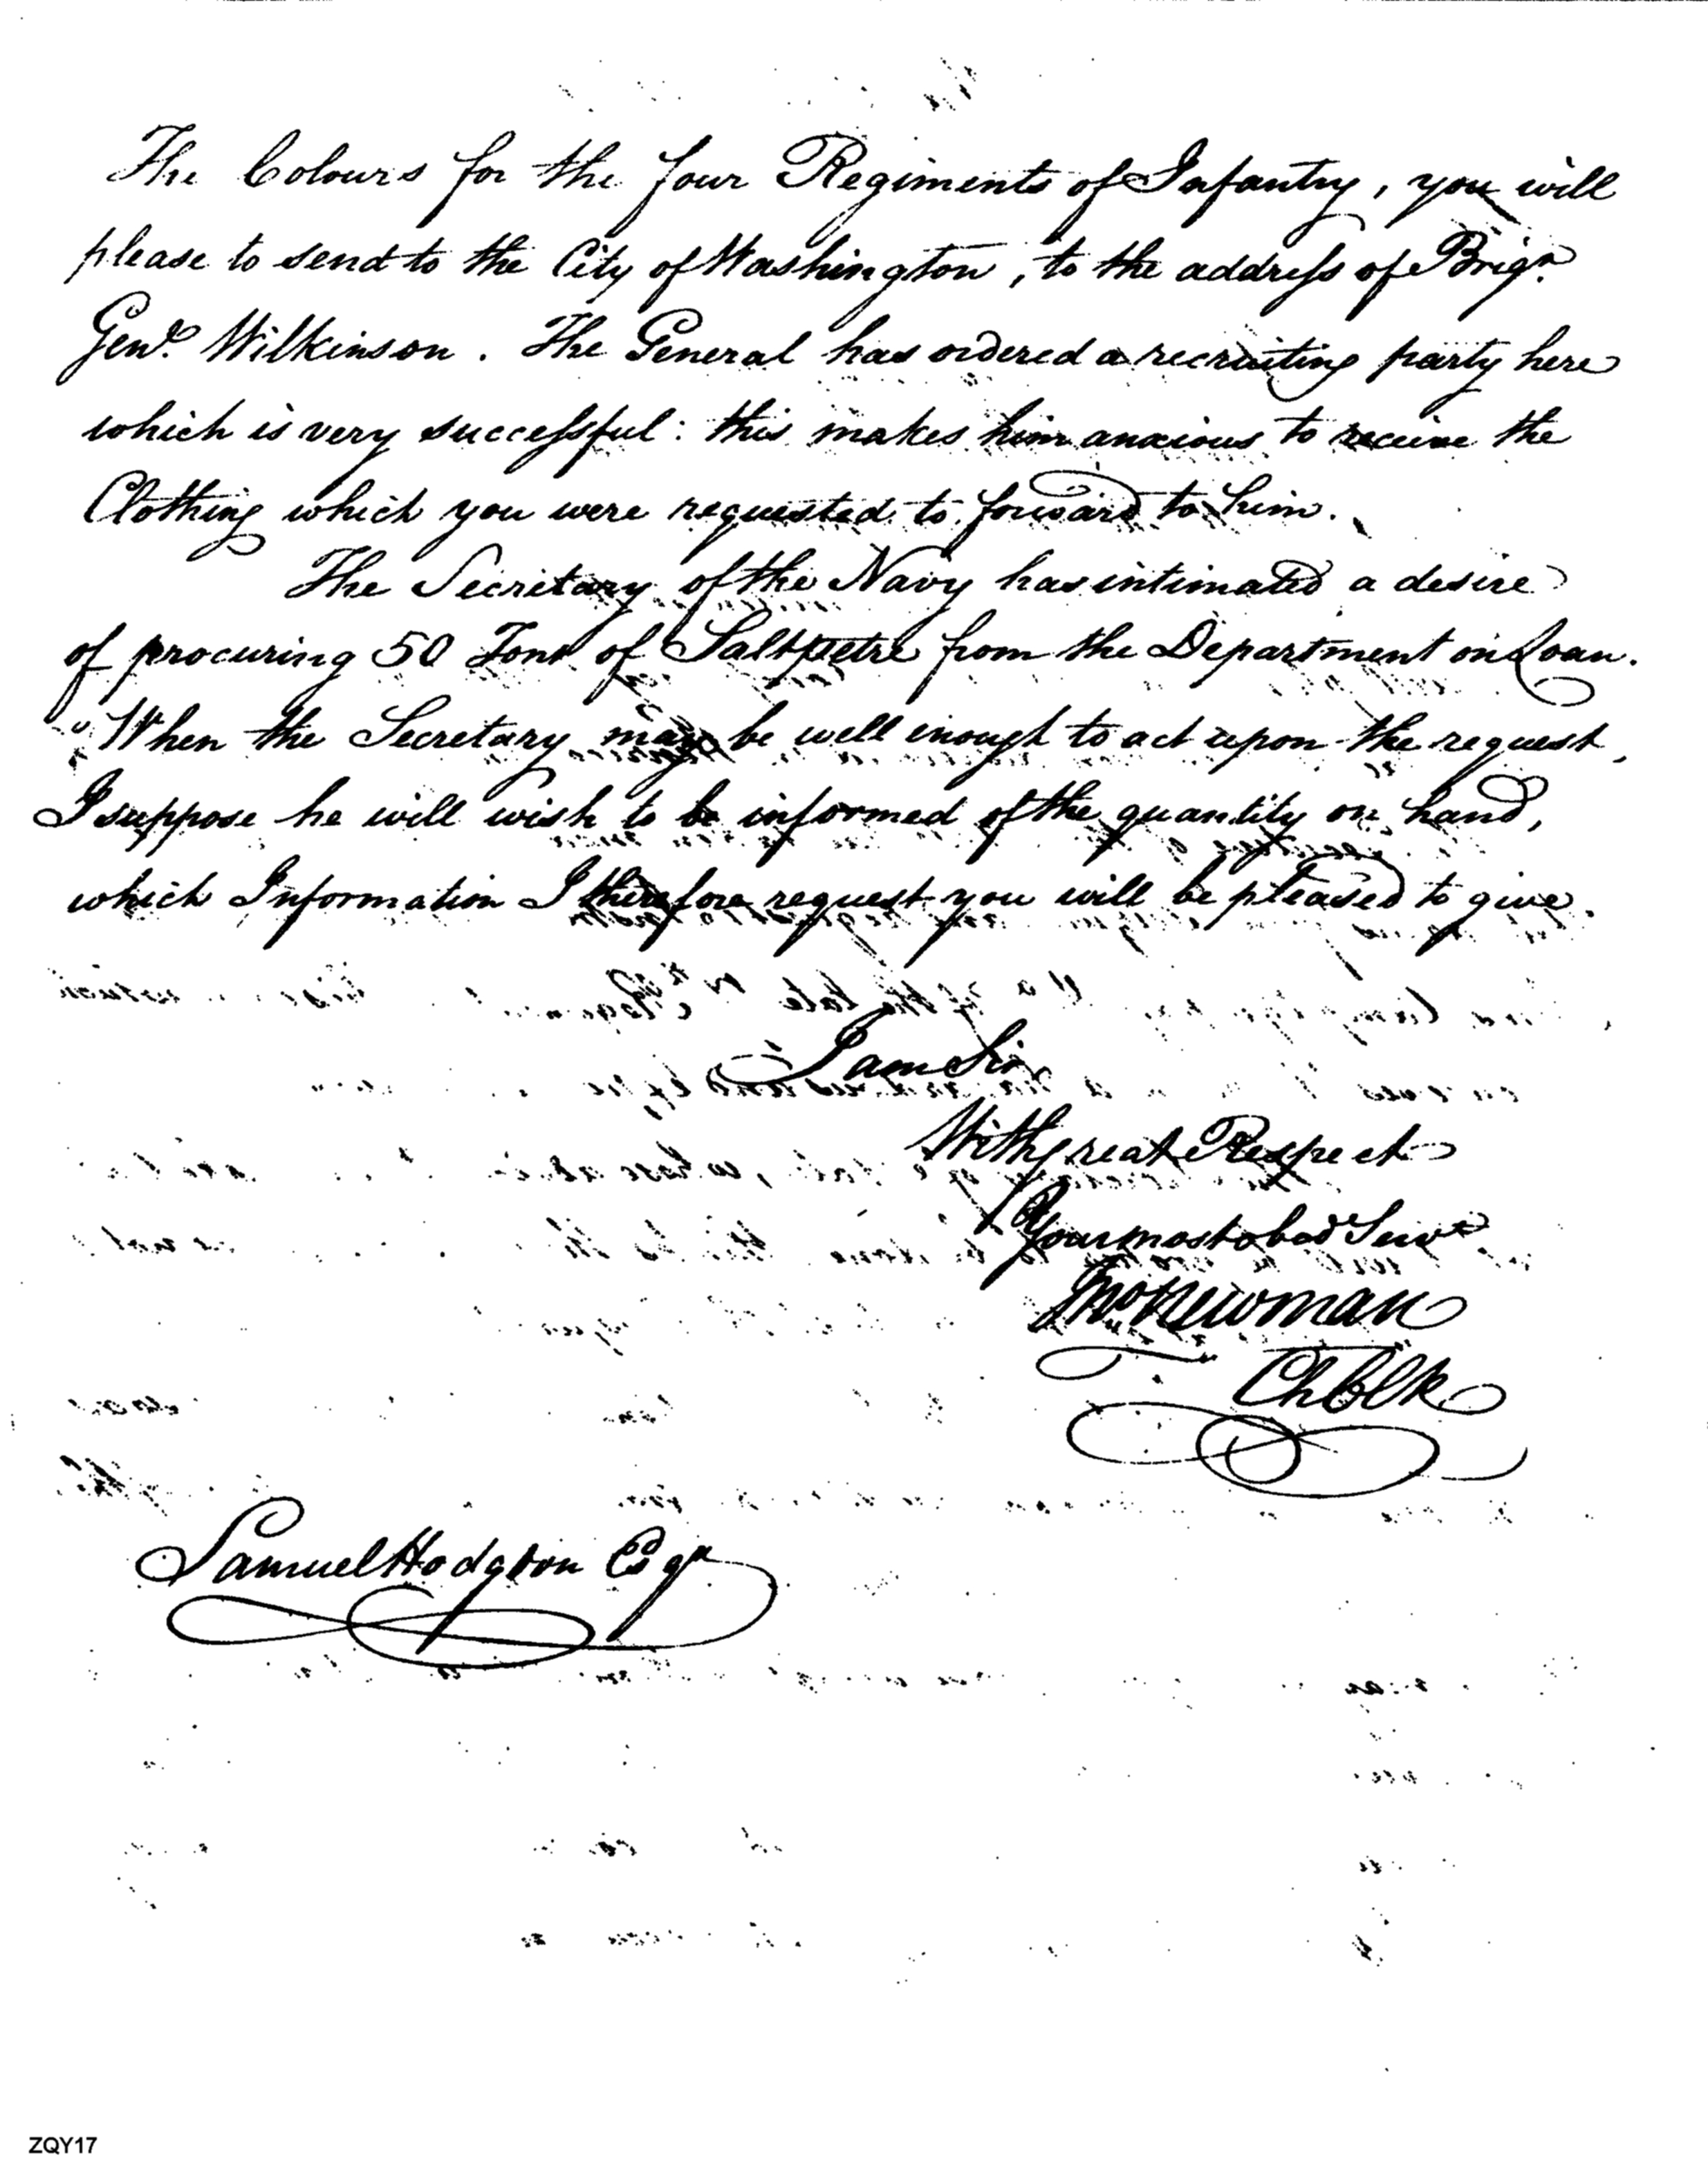 The Colours for the four Regiments of Infantry, you will
please to send to the City of Washington, to the address of Brigr.
Genl. Wilkinson. The General has ordered a recruiting party here
which is very successful: this makes him anxious to receive the
Clothing which you were requested to forward to him.
The Secretary of the Navy has intimated a desire
of procuring 50 Tons of Saltpetre from the Department on Loan.
When the Secretary may be well enough to act upon the request,
I suppose he will wish to be informed of the quantity on hand,
which Information I therefore request you will be pleased to give.
I am Sir
With great Respect
Your most obed Servt
Jno Newman
Ch Clk
Samuel Hodgdon Esqr
ZQY17